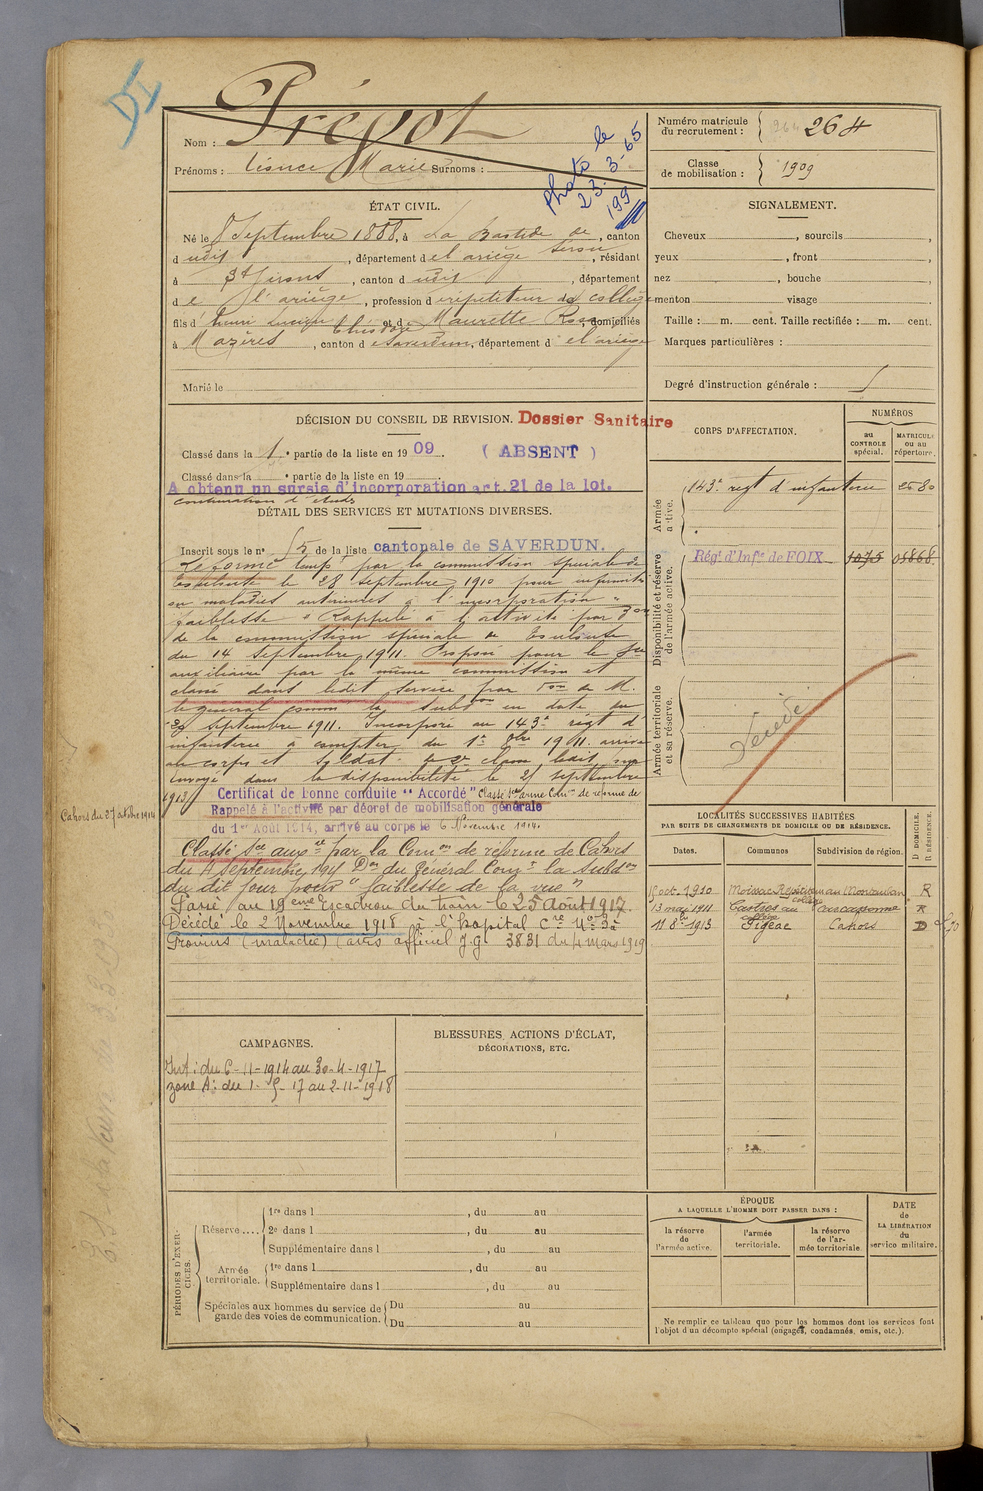 DI
Nom : Prépot
Prénoms : Léonce Marie Surnoms :
Photo le
23-3-65
199
Numéro matricule
du recrutement : 264
Classe
de mobilisation : 1909
ÉTAT CIVIL.
Né le 8 Septembre 1888, à La Bastide de, canton
Serou
dudit, département de l'ariège, résidant
à St Girons, canton dudit, département
de l'ariège, profession de répétiteur de collège
fils d' henri Lucien Théodore et de Maurette Rose, domiciliés
à Mazères, canton de Saverdun, département de l'ariège
Marié le
SIGNALEMENT.
Cheveux , sourcils ,
yeux , front ,
nez , bouche
menton visage .
Taille : m. cent. Taille rectifiée : m. cent.
Marques particulières :
Degré d'instruction générale : 5
DÉCISION DU CONSEIL DE REVISION. Dossier Sanitaire
Classé dans la 1e partie de la liste en 1909. ( ABSENT )
Classé dans la e partie de la liste en 19 .
A obtenu un sursis d'incorporation art. 21 de la loi.
continuation d'études
DÉTAIL DES SERVICES ET MUTATIONS DIVERSES.
Inscrit sous le n° 55 de la liste cantonale de SAVERDUN.
Réformé temp re par la commission spéciale de
Toulouse le 28 septembre 1910 pour infirmités
ou maladies antérieures à l'incorporation "
faiblesse " Rappelé à l'activité par don
de la commission spéciale de Toulouse
du 14 septembre 1911. Proposé pour le Sce
auxiliaire par la même commission et
classé dans ledit service par don de M.
le général comm la subdon en date du
29 septembre 1911. Incorporé au 143e régt d'
infanterie à compter du 1er 8bre 1911. arrivé
au corps et soldat de 2e classe ledit jour
Envoyé dans la disponibilité le 25 septembre
1913 Certificat de bonne conduite " Accordé " Classé Sce armé Comon de réforme de
Cahors du 27 octobre 1914
Rappelé à l'activité par décret de mobilisation générale
du 1er Août 1914, arrivé au corps le 6 Novembre 1914.
Classé Sce auxre par la Comon de réforme de Cahors
du 4 septembre 1915 Don du Général Comt la Subdon
du dit jour pour " faiblesse de la vue "
Passé au 19ème Escadron du train le 25 Août 1917.
Décédé le 2 Novembre 1918 à l'hopital Cre No 32 à
(maladie) (avis officiel J.g. 3831 du 4 mars 1919
CORPS D'AFFECTATION.
NUMÉROS
au
CONTROLE
spécial.
MATRICULE
ou au
répertoire.
Armée
active.
143e regt d'infanterie 2580
Disponibilité et réserve
de l'armée active.
Régt d'Infie de FOIX 1075 05868
Armée territoriale
et sa réserve.
Décédé
LOCALITÉS SUCCESSIVES HABITÉES
PAR SUITE DE CHANGEMENTS DE DOMICILE OU DE RÉSIDENCE.
D DOMICILE.
R RÉSIDENCE.
Dates. Communes Subdivision de région.
15 oct. 1910 Moissac Répétiteur au collège Montauban R
13 mai 1911 Castres au collège Carcassonne R
11 8bre 1913 Figeac Cahors D
CAMPAGNES.
Int : du 6-11-1914 au 30-4-1917
zone A : du 1-5-17 au 2-11-1918
BLESSURES, ACTIONS D'ÉCLAT,
DÉCORATIONS, ETC.
PÉRIODES D'EXER-
CICES.
Réserve....
1re dans l , du au
2e dans l , du au
Supplémentaire dans l , du au
Armée
territoriale.
1re dans l , du au
Supplémentaire dans l , du au
Spéciales aux hommes du service de
garde des voies de communication.
Du au
Du au
ÉPOQUE
A LAQUELLE L'HOMME DOIT PASSER DANS :
la réserve
de
l'armée active.
l'armée
territoriale.
la réserve
de l'ar-
mée territoriale.
DATE
de
LA LIBÉRATION
du
service militaire.
Ne remplir ce tableau que pour les hommes dont les services font
l'objet d'un décompte spécial (engagés, condamnés, omis, etc.).